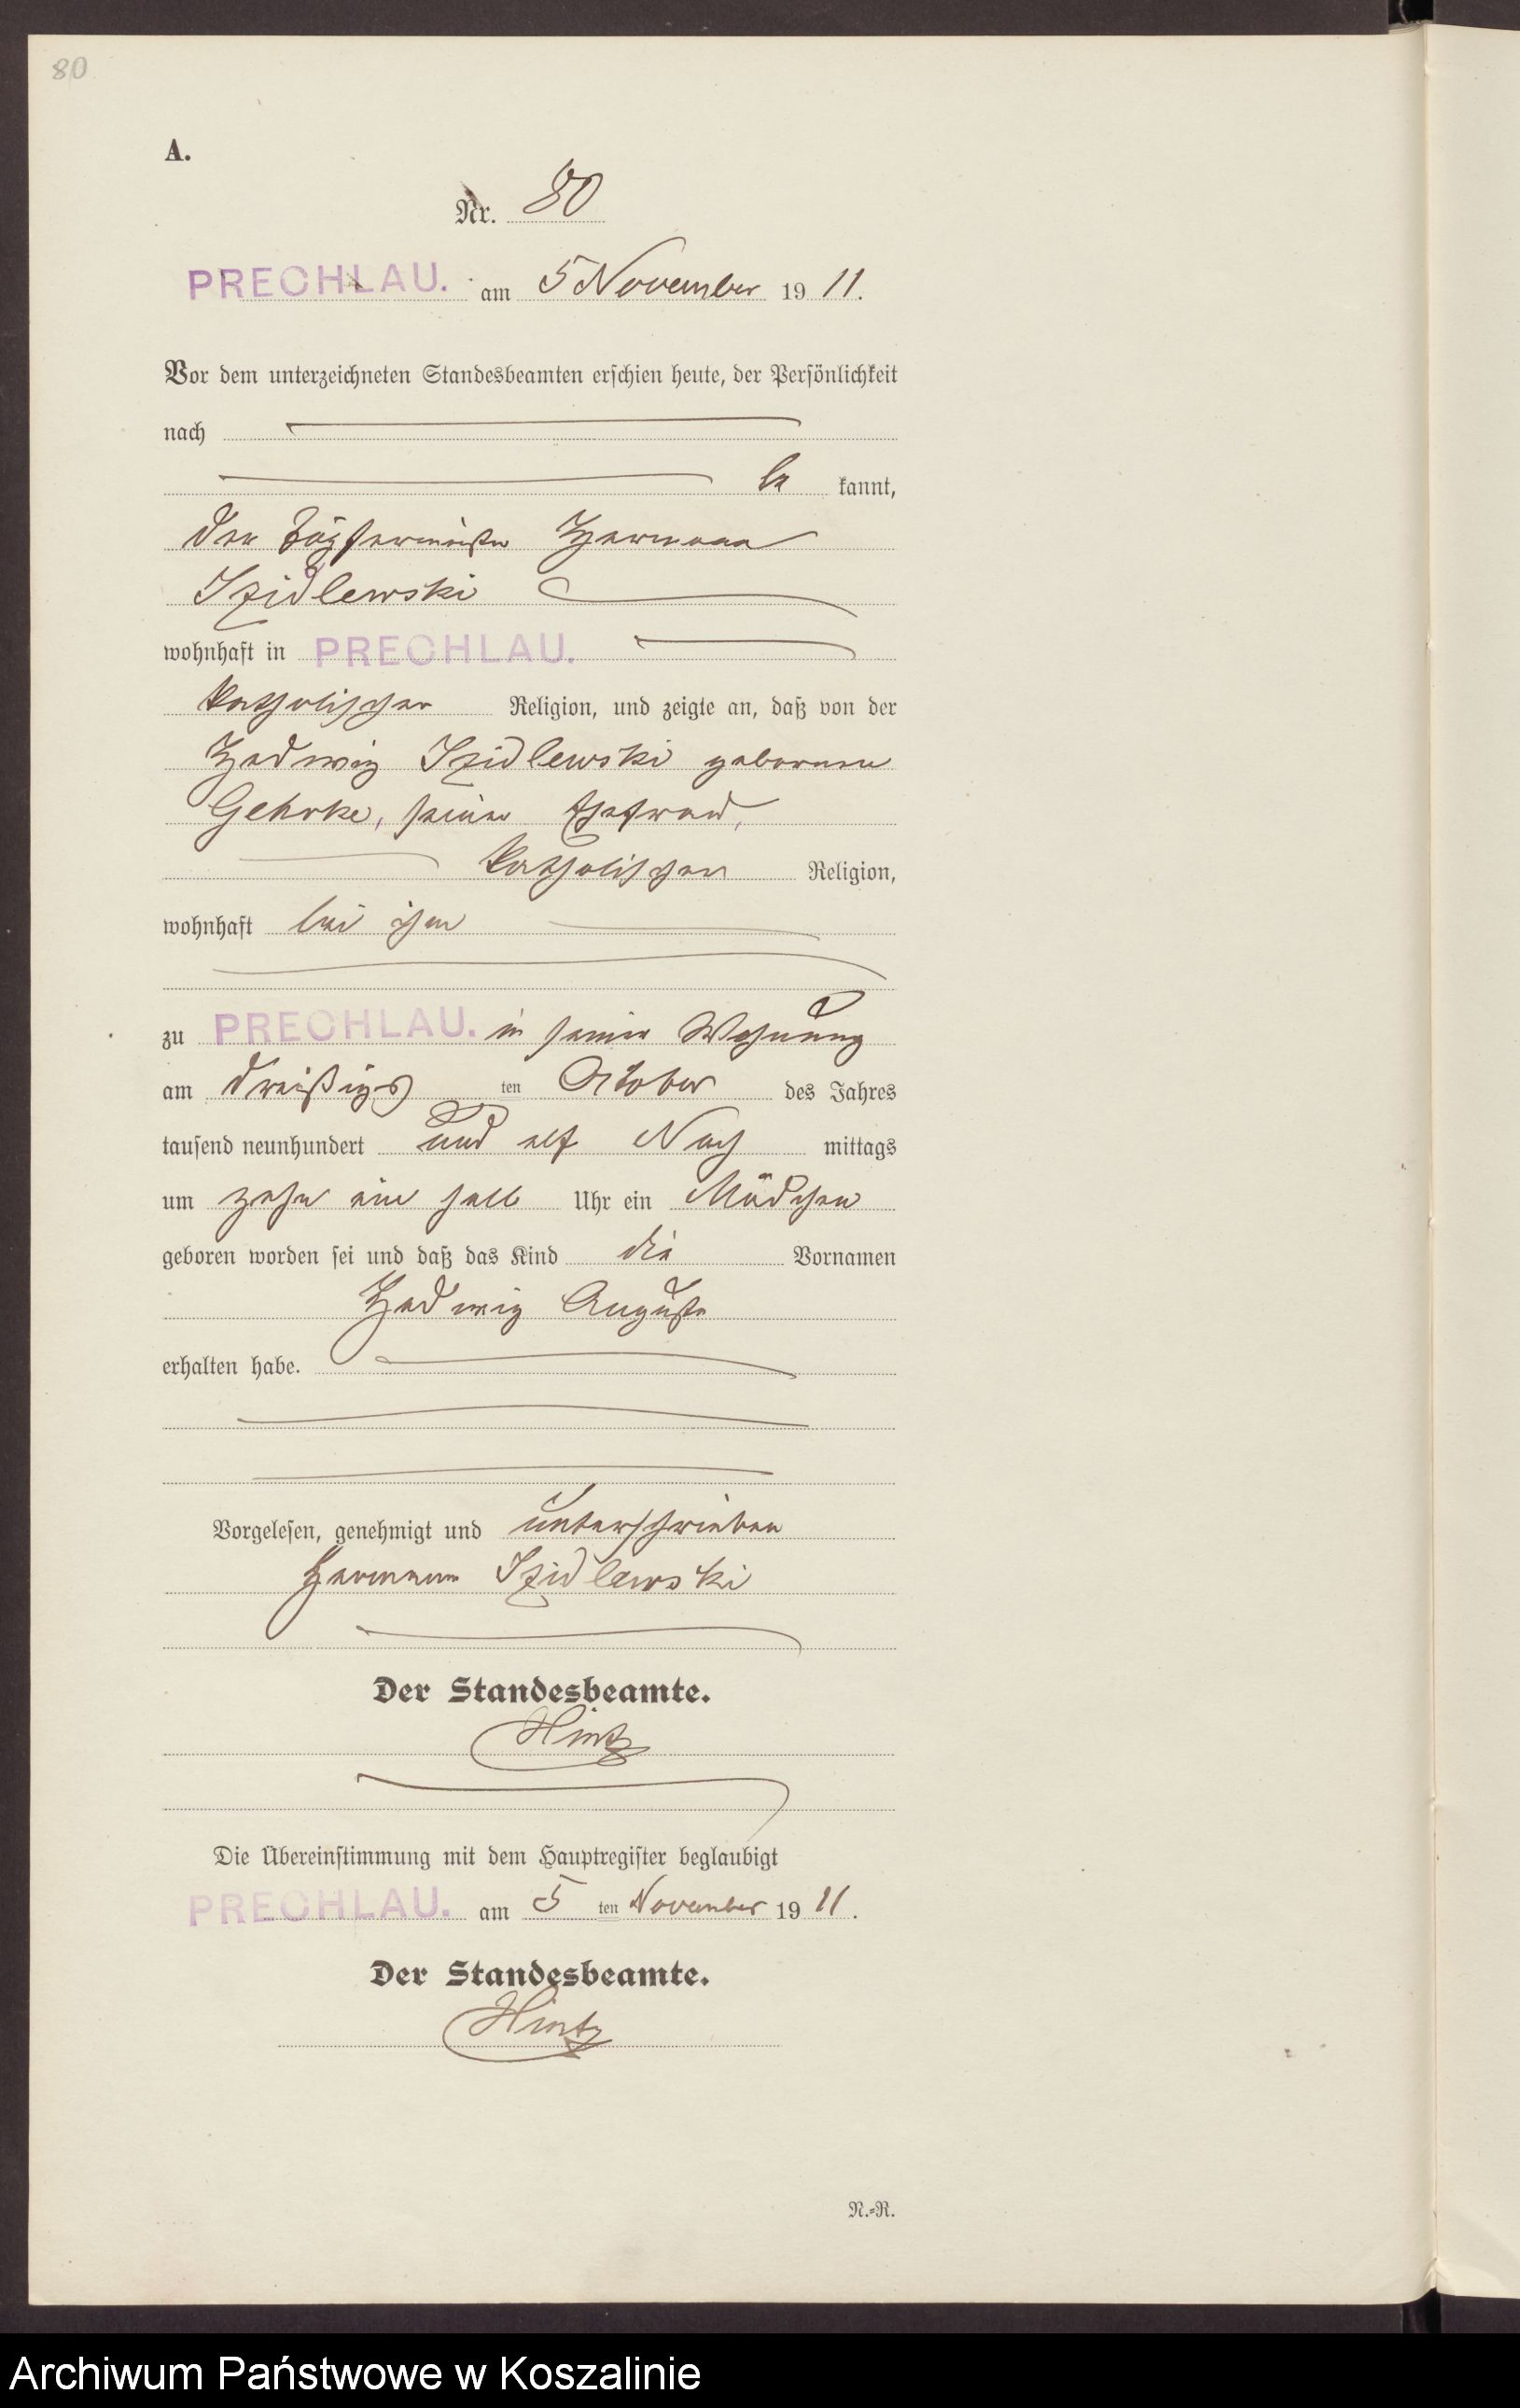 80
A.
Nr. 80
PRECHLAU. am 5 November 1911.
Vor dem unterzeichneten Standesbeamten erschien heute, der Persönlichkeit
nach
be kannt,
der Töpfermeister Hermann
Szidlewski
wohnhaft in PRECHLAU.
katholischer Religion, und zeigte an, daß von der
Hedwig Szidlewski geborenen
Gehrke, seiner Ehefrau,
katholischer Religion,
wohnhaft bei ihm
zu PRECHLAU. in seiner Wohnung
am dreißigs ten October des Jahres
tausend neunhundert und elf Nach mittags
um zehn ein halb Uhr ein Mädchen
geboren worden sei und daß das Kind die Vornamen
Hedwig Auguste
erhalten habe.
Vorgelesen, genehmigt und unterschrieben
Hermann Szidlewski
Der Standesbeamte.
Hintz
Die Übereinstimmung mit dem Hauptregister beglaubigt
PRECHLAU. am 5 ten November 1911.
Der Standesbeamte.
Hintz
N.-R.
Archiwum Państwowe w Koszalinie